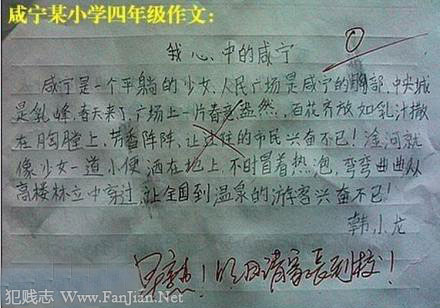 咸宁某小学四年级作文：
我心中的咸宁
0
咸宁是一个平躺的少女，人民广场是咸宁的胸部，中央城
是乳峰，春天来了，广场上一片春意盎然，百花齐放如乳汁撒
在胸膛上，芳香阵阵，让过往的市民兴奋不已！淦河就
像少女一道小便洒在地上，不时冒着热泡，弯弯曲曲从
高楼林立中穿过，让全国到温泉的游客兴奋不已！
韩小龙
！明日请家长到校！
犯贱志 Www.FanJian.Net